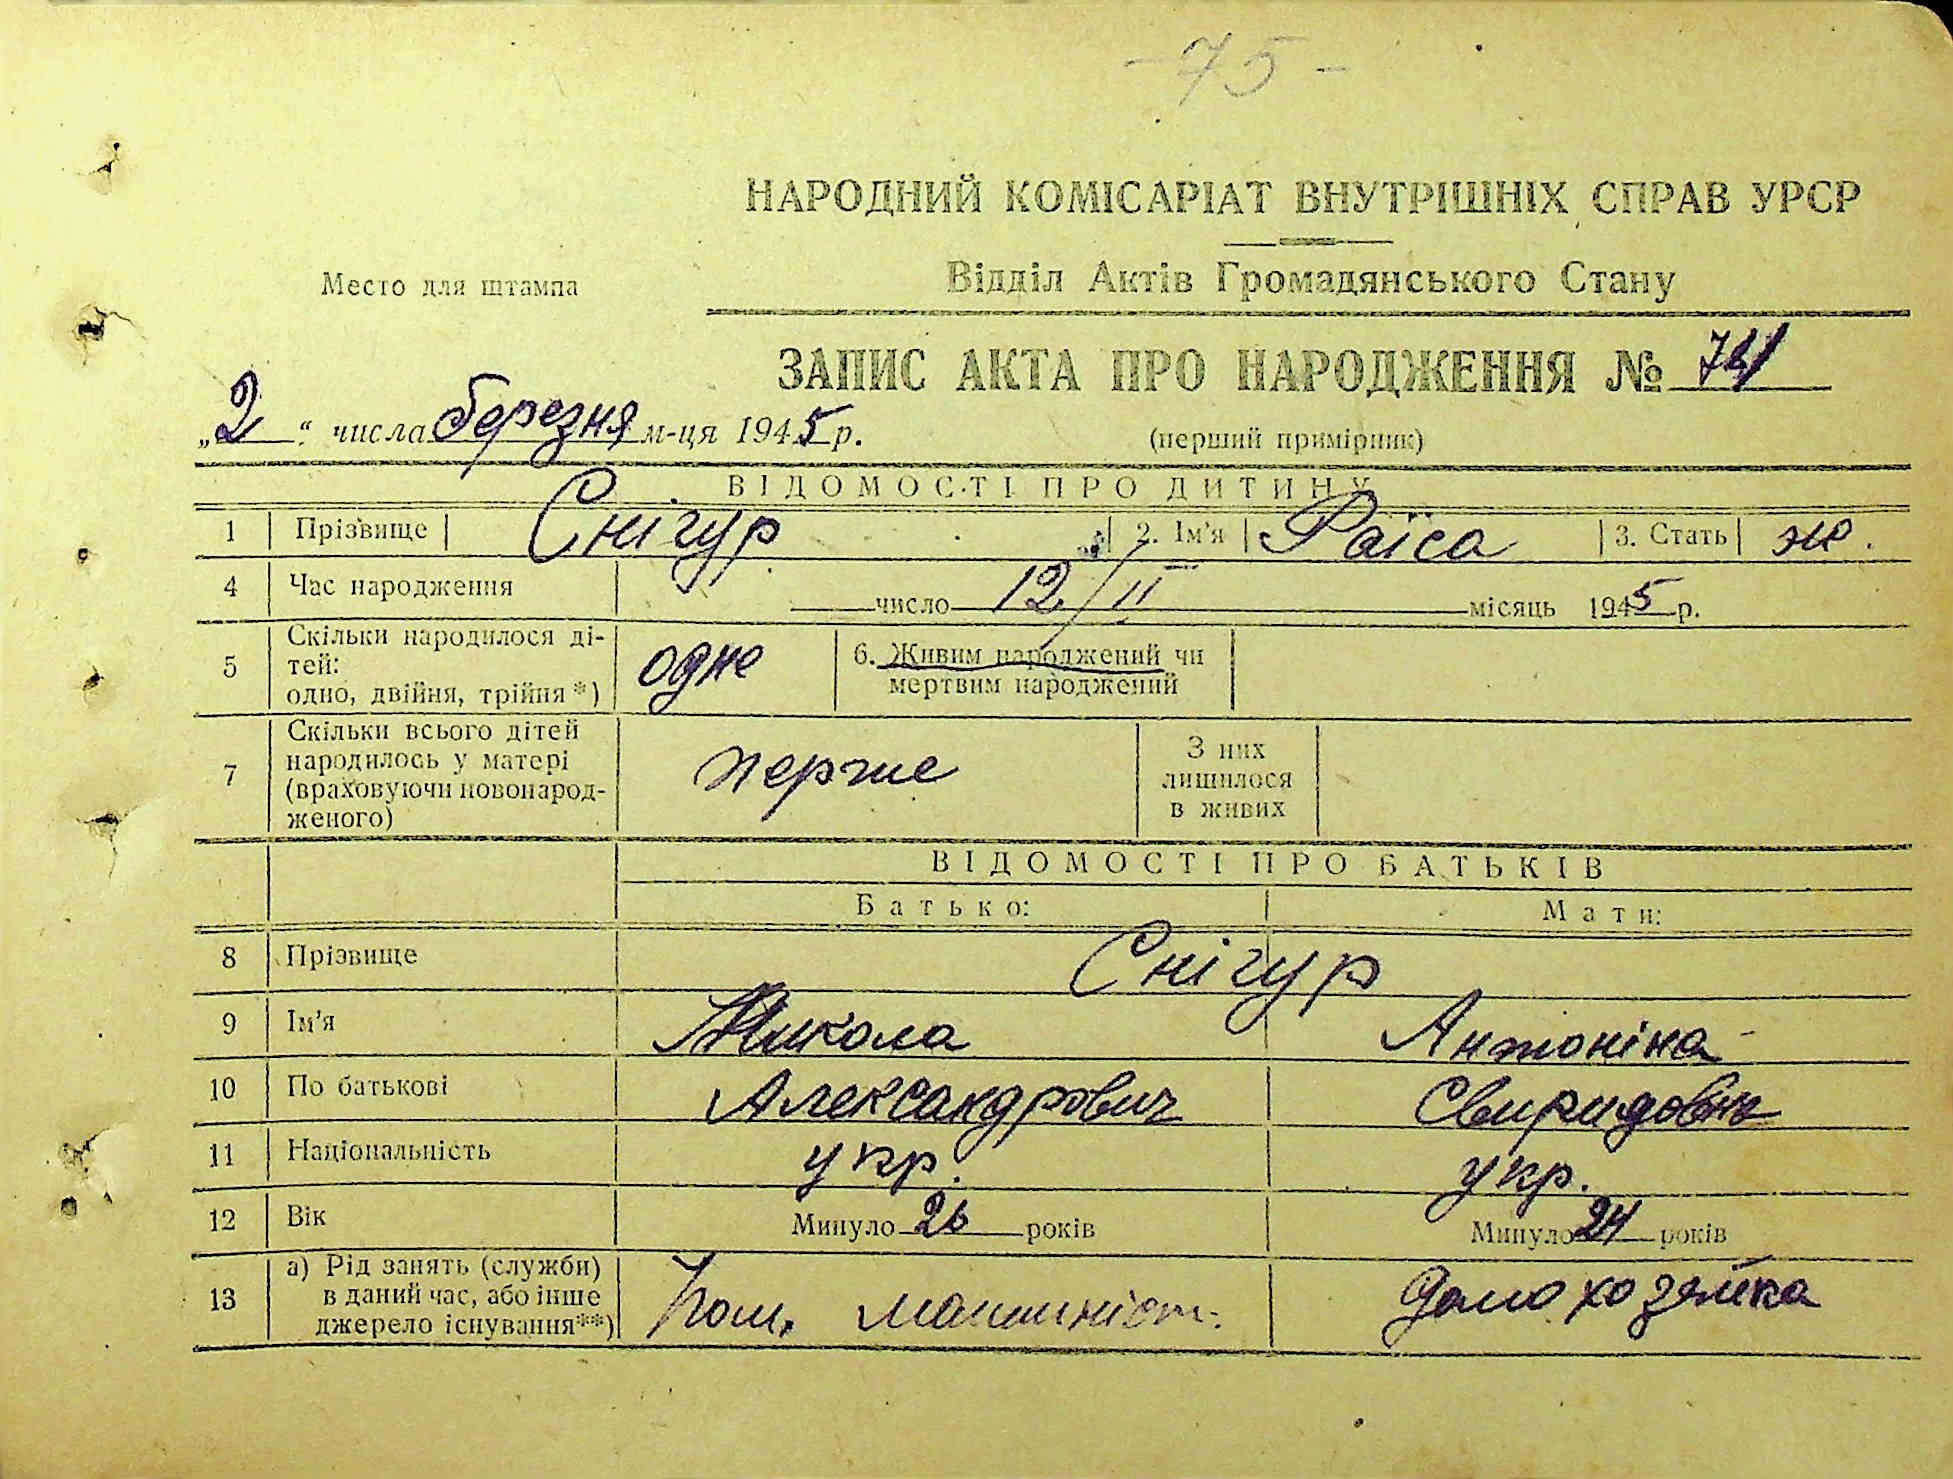 - 75 -
НАРОДНИЙ КОМІСАРІАТ ВНУТРІШНІХ СПРАВ УРСР
Место для штампа
Відділ Актів Громадянського Стану
ЗАПИС АКТА ПРО НАРОДЖЕННЯ №
„2“ числа березня м-ця 1945 р.
(перший примірник)
ВІДОМОСТІ ПРО ДИТИНУ
1 Прізвище Снігур 2. Ім'я Раїса 3. Стать ж.
4 Час народження число 12/II місяць 1945 р.
5 Скільки народилося ді-
тей:
одно, двійня, трійня *) одне
6. Живим народжений чи
мертвим народжений
7 Скільки всього дітей
народилось у матері
(враховуючи новонарод-
женого) перше
З них
лишилося
в живих
ВІДОМОСТІ ПРО БАТЬКІВ
Батько: Мати:
8 Прізвище Снігур
9 Ім'я Микола Антоніна
10 По батькові Александрович Свиридовна
11 Національність укр. укр.
12 Вік Минуло 26 років Минуло 24 років
13 а) Рід занять (служби)
в даний час, або інше
джерело існування**) Пом. машиніст. Домохозяйка